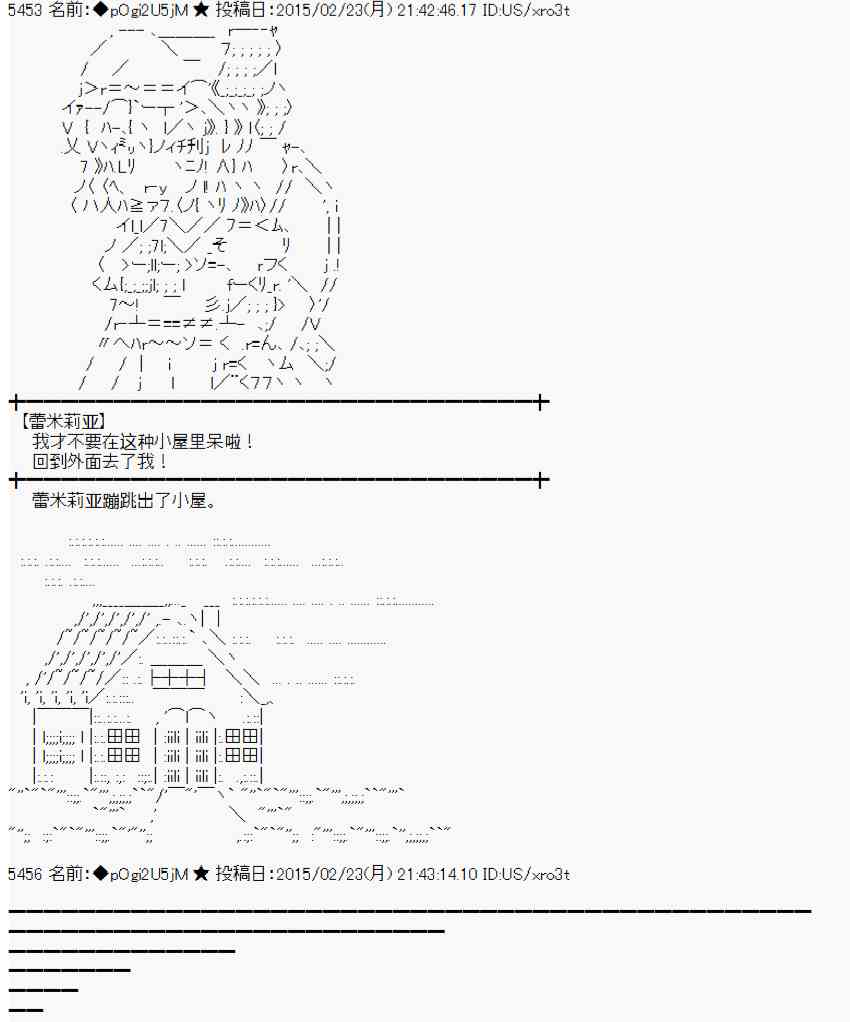 5453 名前：◆pOgi2U5jM ★ 投稿日：2015/02/23(月) 21:42:46.17 ID:US/xro3t
【蕾米莉亚】
我才不要在这种小屋里呆啦！
回到外面去了我！
蕾米莉亚蹦跳出了小屋。
5456 名前：◆pOgi2U5jM ★ 投稿日：2015/02/23(月) 21:43:14.10 ID:US/xro3t